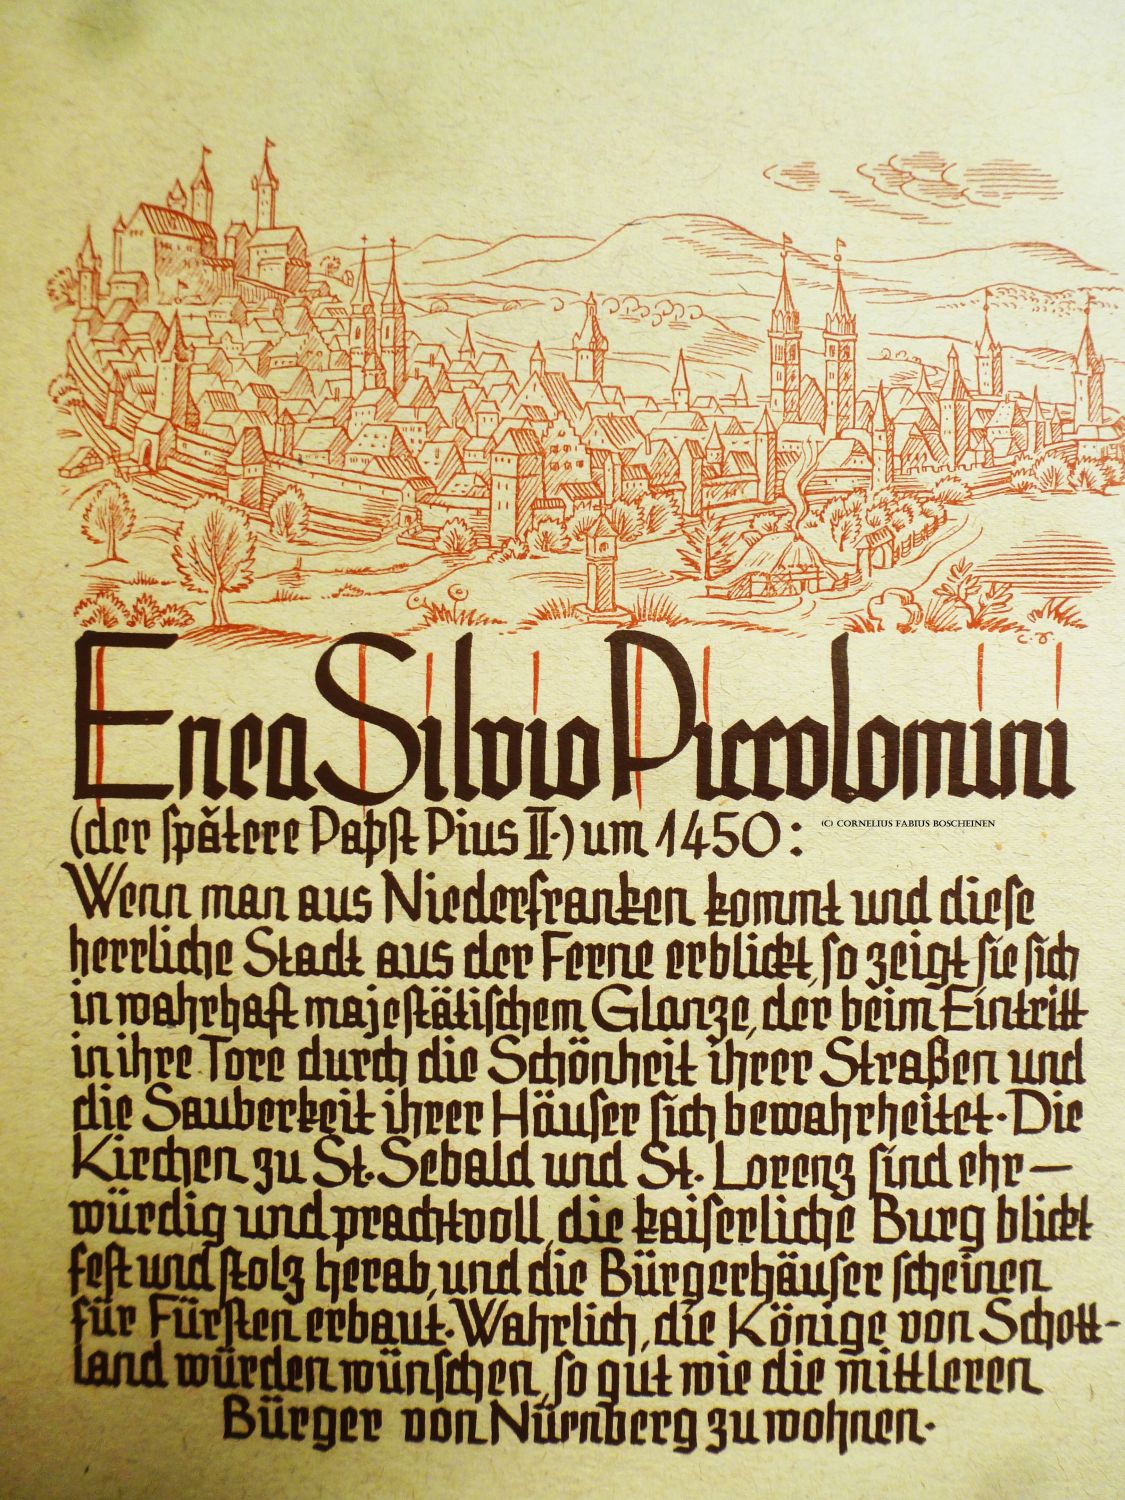 C.V.
Enea Silvio Piccolomini
(der spätere Papst Pius II.) um 1450:
(C) CORNELIUS FABIUS BOSCHEINEN
Wenn man aus Niederfranken kommt und diese
herrliche Stadt aus der Ferne erblickt, so zeigt sie sich
in wahrhaft majestätischem Glanze, der beim Eintritt
in ihre Tore durch die Schönheit ihrer Straßen und
die Sauberkeit ihrer Häuser sich bewahrheitet. Die
Kirchen zu St. Sebald und St. Lorenz sind ehr–
würdig und prachtvoll, die kaiserliche Burg blickt
fest und stolz herab, und die Bürgerhäuser scheinen
für Fürsten erbaut. Wahrlich, die Könige von Schott-
land würden wünschen, so gut wie die mittleren
Bürger von Nürnberg zu wohnen.